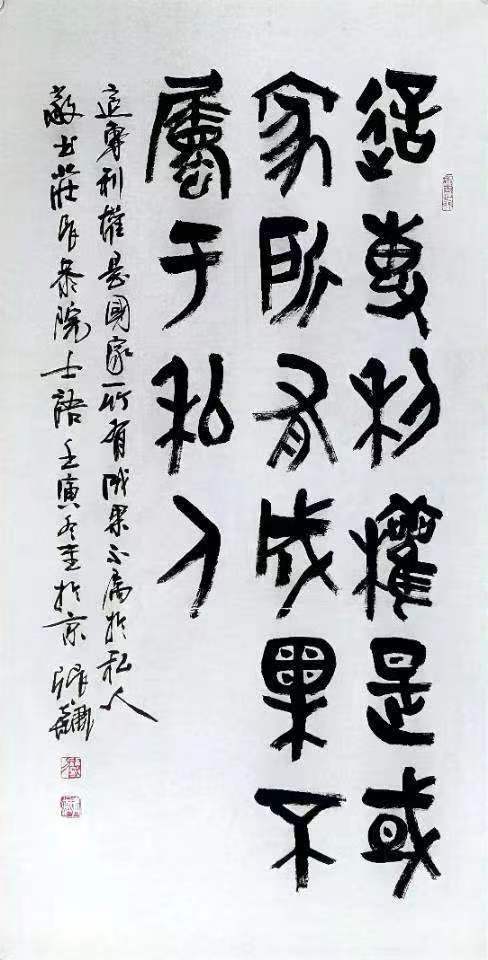 這專利權是或
家所有成果不
屬于私人
這專利權是國家所有成果不屬於私人
敬書莊巧生院士語壬寅冬至於京